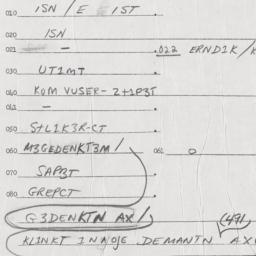 010 ISN / E IST
020 ISN
021 - .022 ERND1K /
030 UT1MT
040 KOM VUSER-2+1P3T
041 -
050 S+L1K3R-CT
060 M3GEDENKT3M / 061 0
070 SAP3T
080 GREPCT
G3DENKTN AX /
KLINKT DEMANTN AX